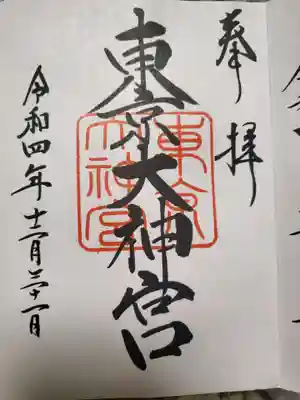 奉拝
東京大神宮
東京大神宮
令和四年十二月三十一日